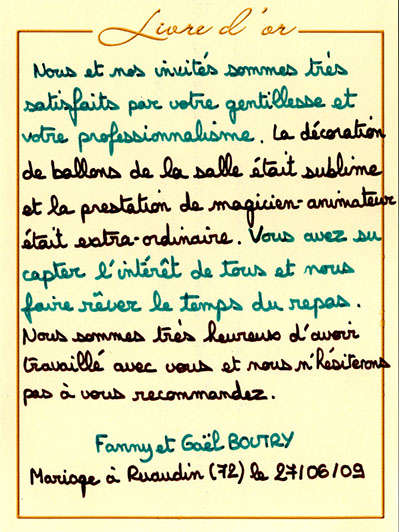 Livre d'or
Nous et nos invités sommes très
satisfaits par votre gentillesse et
votre professionnalisme. La décoration
de ballons de la salle était sublime
et la prestation de magicien-animateur
était extra-ordinaire. Vous avez su
capter l'intérêt de tous et nous
faire rêver le temps du repas.
Nous sommes très heureux d'avoir
travaillé avec vous et nous n'hésiterons
pas à vous recommandez.
Fanny et Gaël BOUTRY
Mariage à Ruaudin (72) le 27/06/09